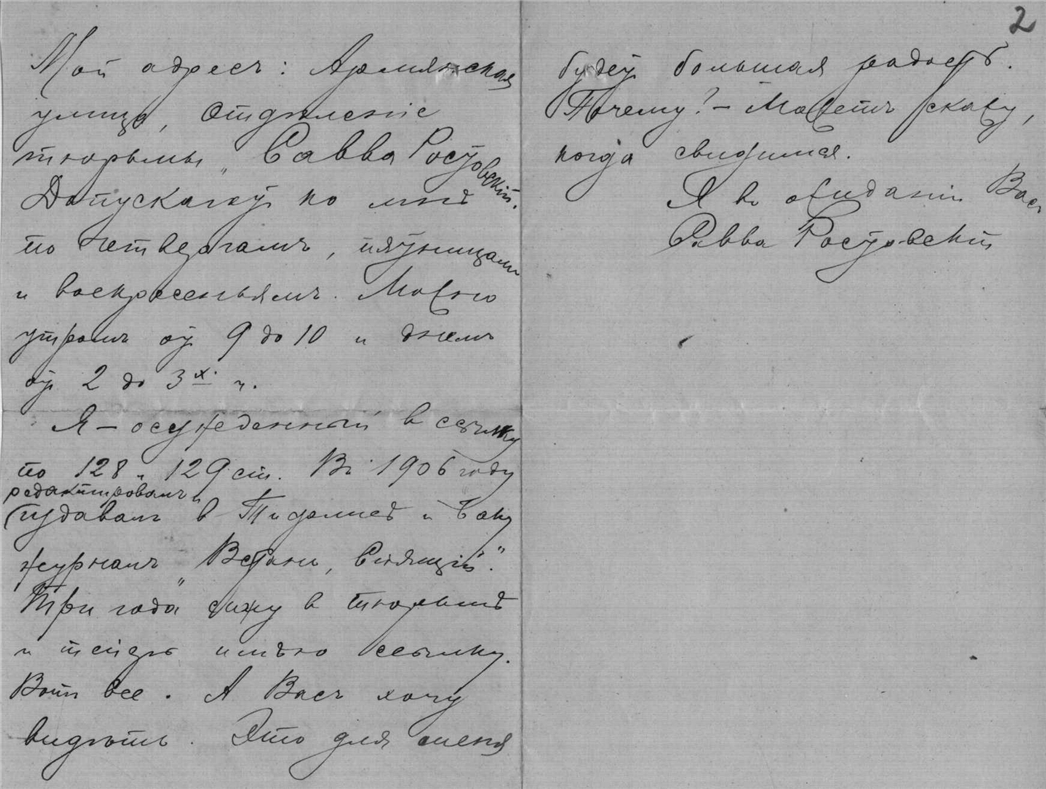 2
Мой адресъ: Армянская
улица, Отдѣленіе
тюрьмы, Савва Ростовскій.
Допускаютъ ко мнѣ
по четвергамъ, пятницамъ
и воскресеньямъ. Можно
утромъ отъ 9 до 10 и днемъ
отъ 2 до 3х ч.
Я – осужденный в ссылку
по 128 и 129 ст. Въ 1906 году
редактировалъ и
издавалъ в Тифлисѣ и Баку
журналъ "Встань, Спящій".
Три года сижу в тюрьмѣ
и теперь имѣю ссылку.
Вотъ все. А Васъ хочу
видѣть. Это для меня
будетъ большая радость.
Почему? – Можетъ скажу,
когда свидимся.
Я в ожиданіи Васъ
Савва Ростовскій